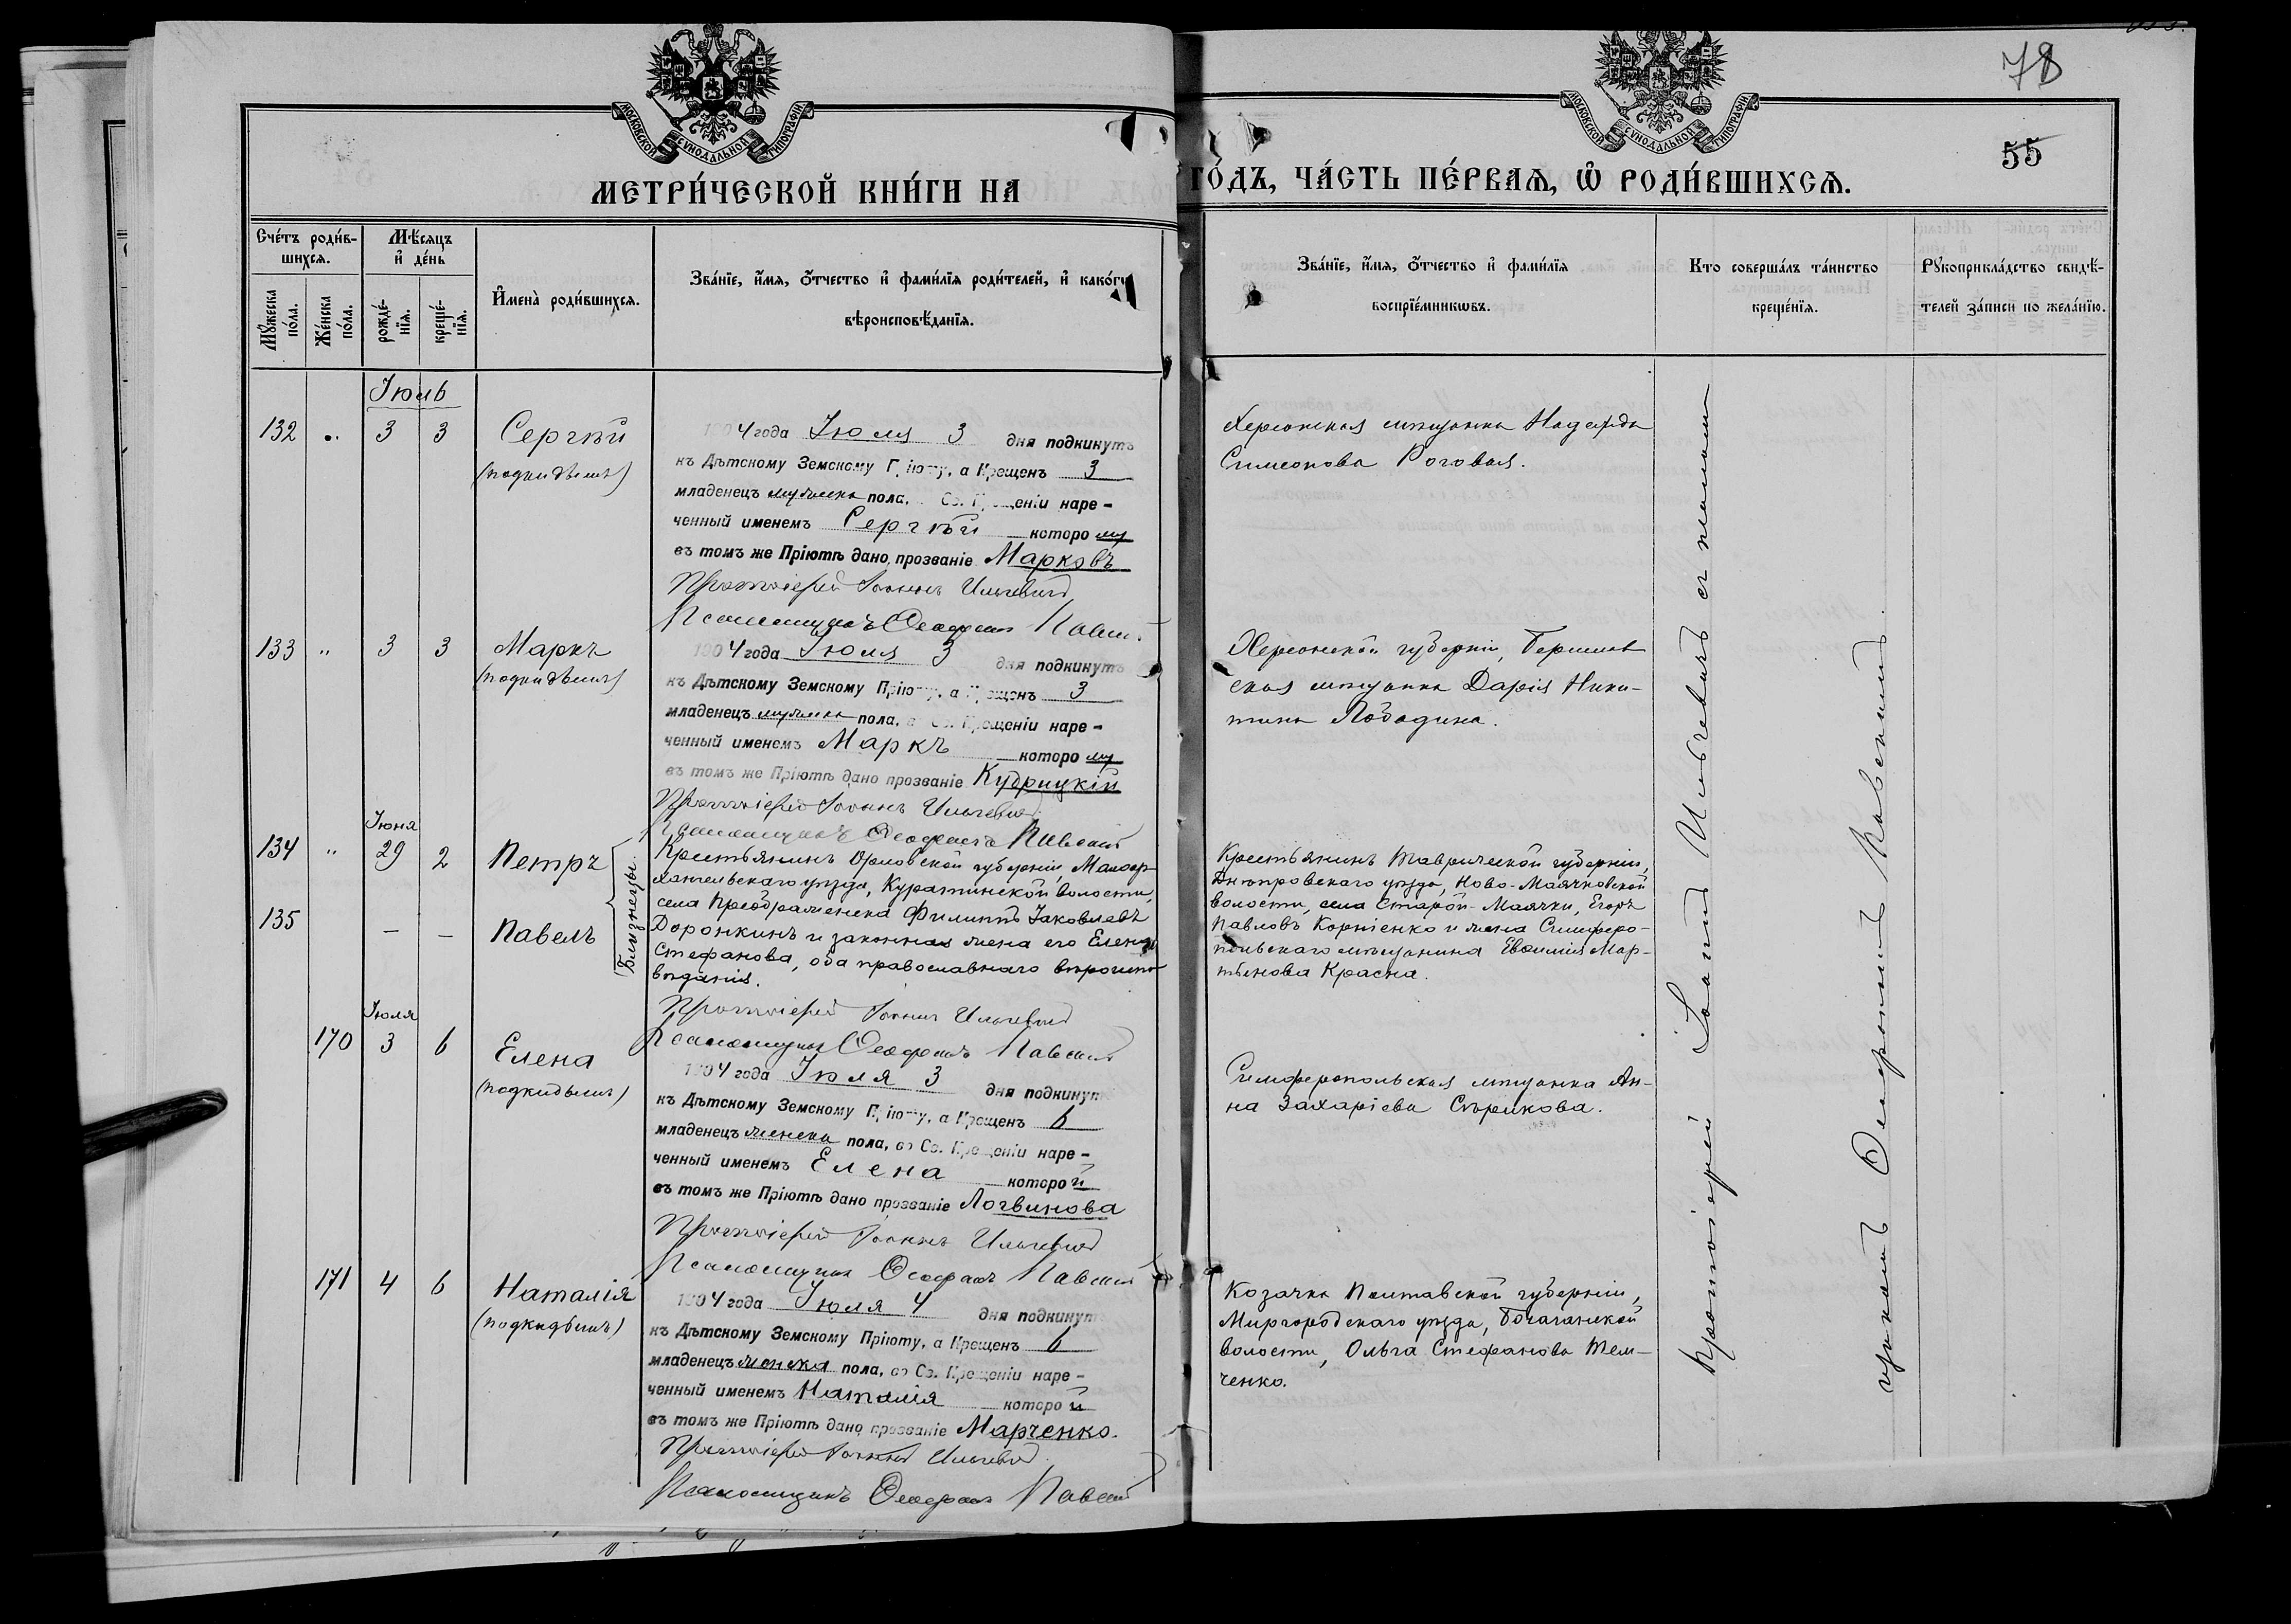 78
55
МОСКОВСКОЙ СѴНОДАЛЬНОЙ ТИПОГРАФІИ
МОСКОВСКОЙ СѴНОДАЛЬНОЙ ТИПОГРАФІИ
МЕТРИ́ЧЕСКОЙ КНИ́ГИ НА
ГО́ДЪ, ЧА́СТЬ ПЕ́РВАѦ, Ѡ҆ РОДИ́ВШИХСѦ.
Сче́тъ роди́в-
шихсѧ.
Мѣ́сѧцъ
и҆ де́нь
Мꙋ́жеска
по́ла.
Же́нска
по́ла.
рожде́-
нїѧ.
креще́-
нїѧ.
И҆мена̀ роди́вшихсѧ.
Зва́нїе, и҆́мѧ, ѻ҆́тчество и҆ фами́лїѧ роди́телей, и҆ како́гѡ
вѣроисповѣ́данїѧ.
Зва́нїе, и҆́мѧ, ѻ҆́тчество и҆ фами́лїѧ
воспрїе́мникѡвъ.
Кто соверша́лъ та́инство
креще́нїѧ.
Рꙋкоприкла́дство свидѣ́-
телей за́писи по жела́нїю.
Іюль
132 " 3 3 Сергѣй
(подкидышъ)
1904 года Іюля 3 дня подкинутъ
къ Дѣтскому Земскому Пріюту, а Крещенъ 3
младенецъ мужеска пола, въ Св. Крещеніи наре-
ченный именемъ Сергѣй которому
въ томъ же Пріютѣ дано прозваніе Марковъ
Протоіерей Іоаннъ Ильчевичъ
Псаломщикъ Павскій
Херсонская мѣщанка Надежда
Симеонова Роговая.
133 " 3 3 Маркъ
(подкидышъ)
1904 года Іюля 3 дня подкинутъ
къ Дѣтскому Земскому Пріюту, а Крещенъ 3
младенецъ мужеска пола, въ Св. Крещеніи наре-
ченный именемъ Маркъ которому
въ томъ же Пріютѣ дано прозваніе Кудрицкій
Протоіерей Іоаннъ Ильчевичъ
Псаломщикъ Павскій
Херсонской губерніи,
ская мѣщанка Дарія Ники-
тина
Іюня
134 " 29 2 Петръ
135 — — Павелъ
Близнецы.
Крестьянинъ Орловской губерніи, Малоар-
хангельскаго уѣзда, Куратинской волости,
села Преображенска Филиппъ Іаковлевъ
Доронкинъ и законная жена его Елена
Стефанова, оба православнаго вѣроиспо-
вѣданія.
Протоіерей Іоаннъ Ильчевичъ
Псаломщикъ Павскій
Крестьянинъ Таврической губерніи,
Днѣпровскаго уѣзда, Ново-Маячковской
волости, села Старой-Маячки, Егоръ
Павловъ Корніенко и жена Симферо-
польскаго мѣщанина Евфимія Мар-
тынова Красна.
Іюля
170 3 6 Елена
(подкидышъ)
1904 года Іюля 3 дня подкинутъ
къ Дѣтскому Земскому Пріюту, а Крещенъ 6
младенецъ женска пола, въ Св. Крещеніи наре-
ченный именемъ Елена которой
въ томъ же Пріютѣ дано прозваніе Логвинова
Протоіерей Іоаннъ Ильчевичъ
Псаломщикъ Павскій
Симферопольская мѣщанка Ан-
на Захаріева Стрикова.
171 4 6 Наталія
(подкидышъ)
1904 года Іюля 4 дня подкинутъ
къ Дѣтскому Земскому Пріюту, а Крещенъ 6
младенецъ женска пола, въ Св. Крещеніи наре-
ченный именемъ Наталія которой
въ томъ же Пріютѣ дано прозваніе Марченко.
Протоіерей Іоаннъ Ильчевичъ
Псаломщикъ Павскій
Козачка Полтавской губерніи,
Миргородскаго уѣзда, Богачанской
волости, Ольга Стефанова Тем-
ченко.
Протоіерей Іоаннъ Ильчевичъ съ псалом-
щикомъ Павскимъ.